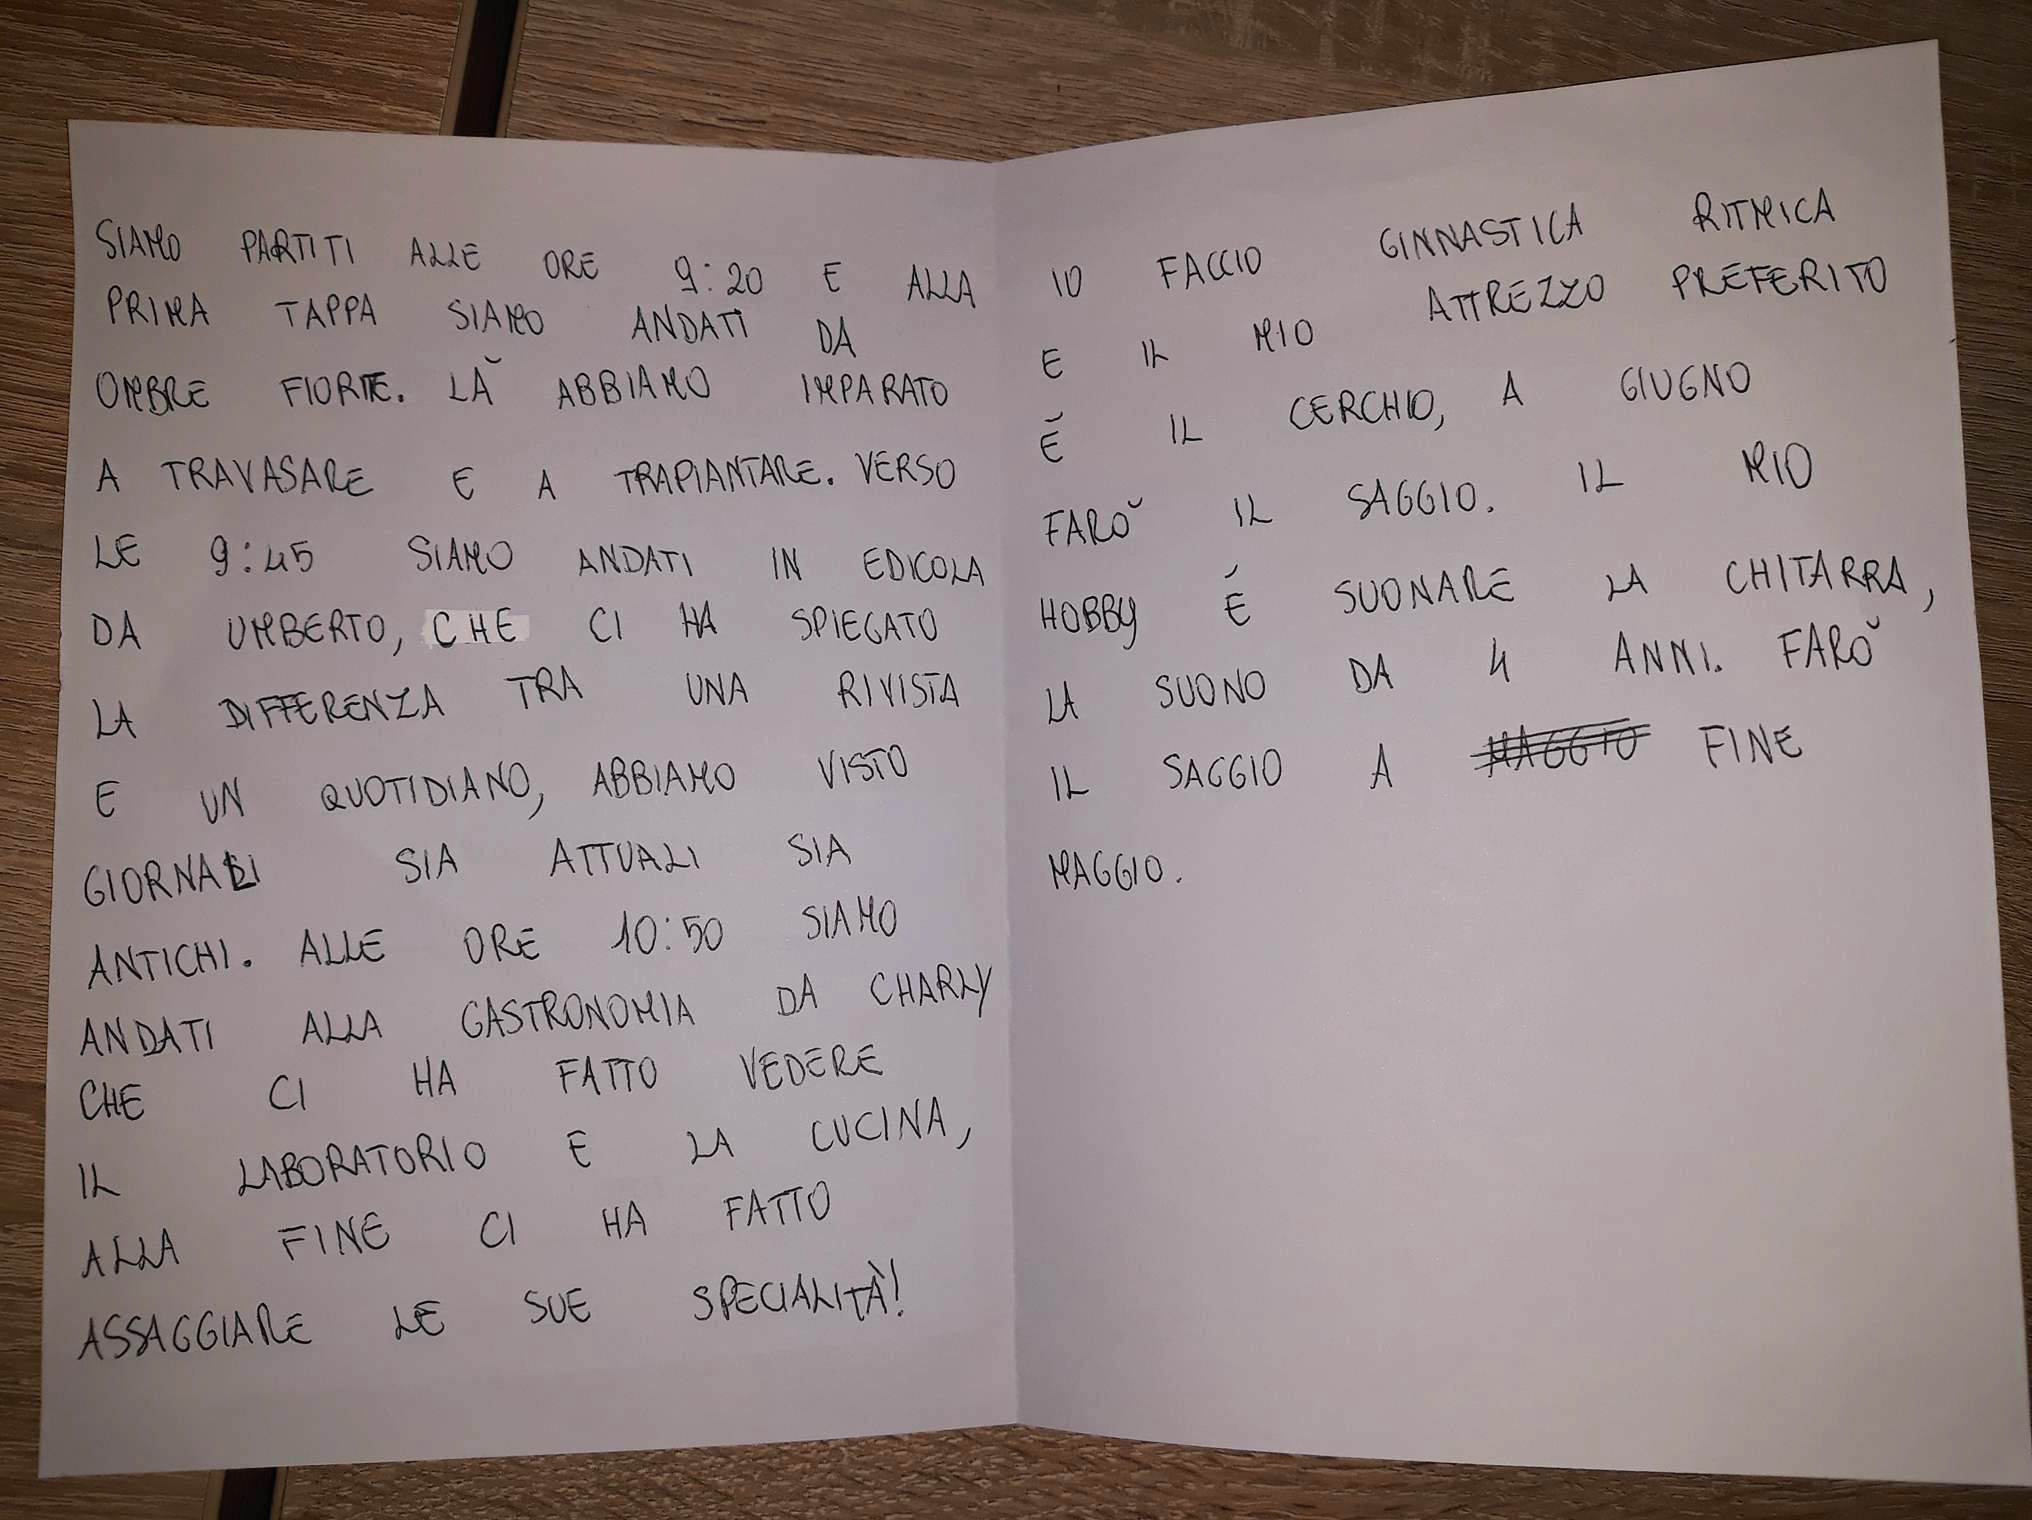 SIAMO PARTITI ALLE ORE 9:20 E ALLA
PRIMA TAPPA SIAMO ANDATI DA
OMBRE FIORITE. LÀ ABBIAMO IMPARATO
A TRAVASARE E A TRAPIANTARE. VERSO
LE 9:45 SIAMO ANDATI IN EDICOLA
DA UMBERTO, CHE CI HA SPIEGATO
LA DIFFERENZA TRA UNA RIVISTA
E UN QUOTIDIANO, ABBIAMO VISTO
GIORNALI SIA ATTUALI SIA
ANTICHI. ALLE ORE 10:50 SIAMO
ANDATI ALLA GASTRONOMIA DA CHARLY
CHE CI HA FATTO VEDERE
IL LABORATORIO E LA CUCINA,
ALLA FINE CI HA FATTO
ASSAGGIARE LE SUE SPECIALITÀ!
IO FACCIO GINNASTICA RITMICA
E IL MIO ATTREZZO PREFERITO
É IL CERCHIO, A GIUGNO
FARÒ IL SAGGIO. IL MIO
HOBBY É SUONARE LA CHITARRA,
LA SUONO DA 4 ANNI. FARÒ
IL SAGGIO A MAGGIO FINE
MAGGIO.